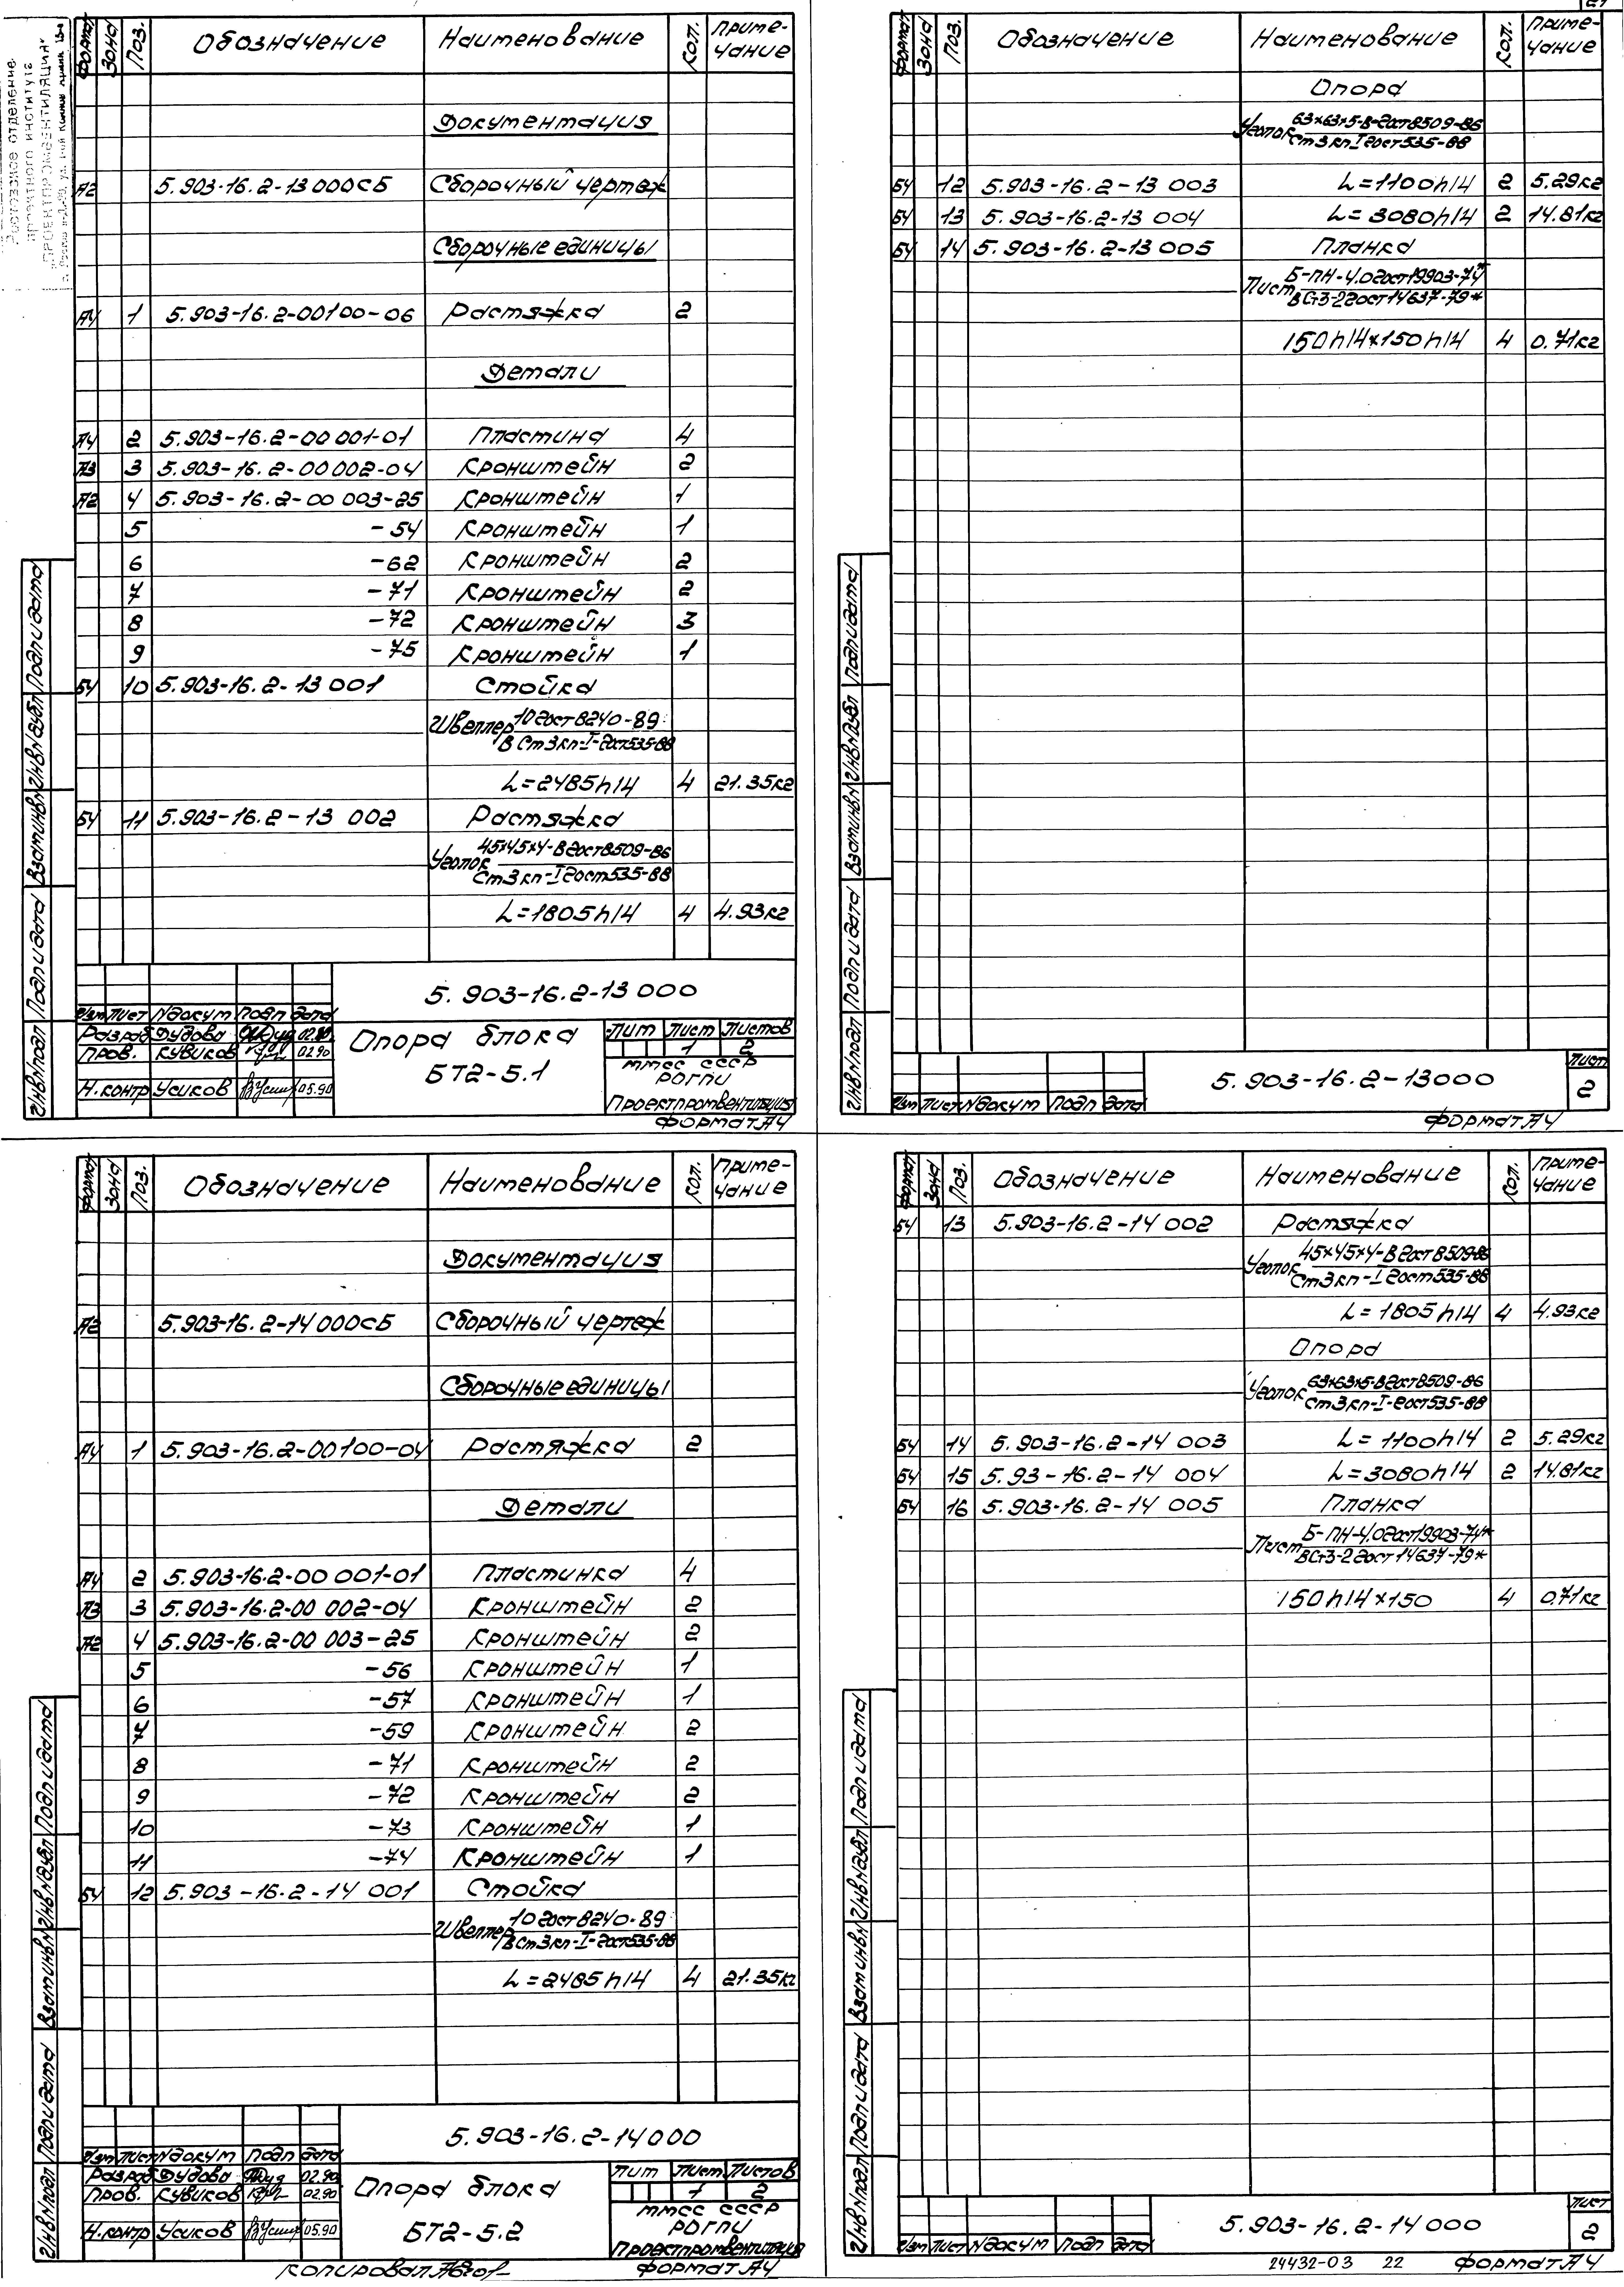 Ростовское отделение
проектного института
"ПРОЕКТПРОМВЕНТИЛЯЦИЯ"
Формат Зона Поз. Обозначение Наименование Кол. Приме-
чание
Документация
А2 5.903-16.2-13 000СБ Сборочный чертеж
Сборочные единицы
А4 1 5.903-16.2-00100-06 Растяжка 2
Детали
А4 2 5.903-16.2-00 001-01 Пластина 4
А3 3 5.903-16.2-00 002-04 Кронштейн 2
А2 4 5.903-16.2-00 003-25 Кронштейн 1
5 -54 Кронштейн 1
6 -62 Кронштейн 2
7 -71 Кронштейн 2
8 -72 Кронштейн 3
9 -75 Кронштейн 1
БЧ 10 5.903-16.2-13 001 Стойка
Швеллер 10 гост 8240-89
В Ст3кп-I-гост535-88
L=2485h14 4 21.35кг
БЧ 11 5.903-16.2-13 002 Растяжка
Уголок 45х45х4-В гост8509-86
Ст3кп-I гост535-88
L=1805h14 4 4.93кг
5.903-16.2-13 000
Изм Лист №докум Подп Дата
Разраб Дудова 02.90
Пров. Кувиков 02.90
Н.контр Усиков 05.90
Опора блока
БТ2-5.1
Лит Лист Листов
1 2
ММСС СССР
РОГПИ
Проектпромвентиляция
Формат А4
Инв№подл Подп и дата Взам инв№ Инв№дубл Подп и дата
Формат Зона Поз. Обозначение Наименование Кол. Приме-
чание
Опора
Уголок 63х63х5-В-гост8509-86
Ст3кп-I гост535-88
БЧ 12 5.903-16.2-13 003 L=1100h14 2 5.29кг
БЧ 13 5.903-16.2-13 004 L=3080h14 2 14.81кг
БЧ 14 5.903-16.2-13 005 Планка
Лист Б-ПН-4.0 гост19903-74*
ВСт3-2 гост14637-79*
150h14х150h14 4 0.71кг
Изм Лист №докум Подп Дата
5.903-16.2-13000
Лист
2
Формат А4
Инв№подл Подп и дата Взам инв№ Инв№дубл Подп и дата
Формат Зона Поз. Обозначение Наименование Кол. Приме-
чание
Документация
А2 5.903-16.2-14 000СБ Сборочный чертеж
Сборочные единицы
А4 1 5.903-16.2-00100-04 Растяжка 2
Детали
А4 2 5.903-16.2-00 001-01 Пластинка 4
А3 3 5.903-16.2-00 002-04 Кронштейн 2
А2 4 5.903-16.2-00 003-25 Кронштейн 2
5 -56 Кронштейн 1
6 -57 Кронштейн 1
7 -59 Кронштейн 2
8 -71 Кронштейн 2
9 -72 Кронштейн 2
10 -73 Кронштейн 1
11 -74 Кронштейн 1
БЧ 12 5.903-16.2-14 001 Стойка
Швеллер 10 гост 8240-89
ВСт3кп-I-гост535-88
L=2485h14 4 21.35кг
5.903-16.2-14000
Изм Лист №докум Подп Дата
Разраб Дудова 02.90
Пров. Кувиков 02.90
Н.контр Усиков 05.90
Опора блока
БТ2-5.2
Лит Лист Листов
1 2
ММСС СССР
РОГПИ
Проектпромвентиляция
Копировал
Формат А4
Инв№подл Подп и дата Взам инв№ Инв№дубл Подп и дата
Формат Зона Поз. Обозначение Наименование Кол. Приме-
чание
БЧ 13 5.903-16.2-14 002 Растяжка
Уголок 45х45х4-В гост8509-86
Ст3кп-I гост535-88
L=1805h14 4 4.93кг
Опора
Уголок 63х63х5-В гост8509-86
Ст3кп-I-гост535-88
БЧ 14 5.903-16.2-14 003 L=1100h14 2 5.29кг
БЧ 15 5.93-16.2-14 004 L=3080h14 2 14.81кг
БЧ 16 5.903-16.2-14 005 Планка
Лист Б-ПН-4.0 гост19903-74*
ВСт3-2 гост14637-79*
150h14х150 4 0.71кг
Изм Лист №докум Подп Дата
5.903-16.2-14 000
Лист
2
24432-03 22 Формат А4
Инв№подл Подп и дата Взам инв№ Инв№дубл Подп и дата